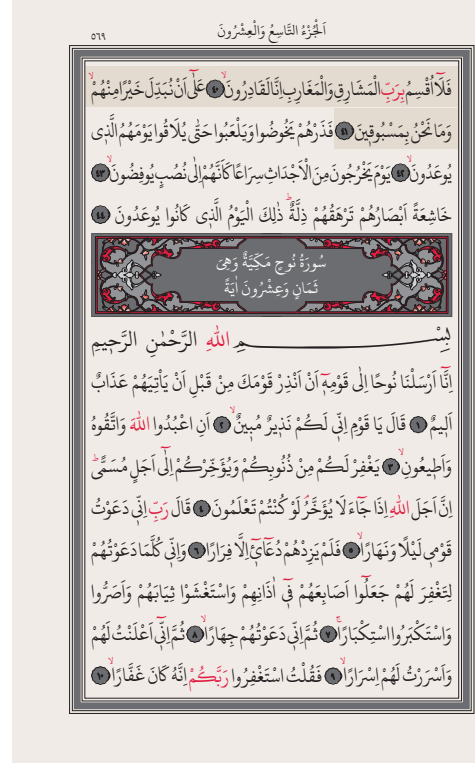 اَلْجُزْءُ التَّاسِعُ وَالْعِشْرُونَ
٥٦٩
فَلَٓا اُقْسِمُ بِرَبِّ الْمَشَارِقِ وَالْمَغَارِبِ اِنَّا لَقَادِرُونَۙ ﴿٤٠﴾ عَلٰٓى اَنْ نُبَدِّلَ خَيْرًا مِنْهُمْۙ
وَمَا نَحْنُ بِمَسْبُوقٖينَ ﴿٤١﴾ فَذَرْهُمْ يَخُوضُوا وَيَلْعَبُوا حَتّٰى يُلَاقُوا يَوْمَهُمُ الَّذٖى
يُوعَدُونَۙ ﴿٤٢﴾ يَوْمَ يَخْرُجُونَ مِنَ الْاَجْدَاثِ سِرَاعًا كَاَنَّهُمْ اِلٰى نُصُبٍ يُوفِضُونَۙ ﴿٤٣﴾
خَاشِعَةً اَبْصَارُهُمْ تَرْهَقُهُمْ ذِلَّةٌؕ ذٰلِكَ الْيَوْمُ الَّذٖى كَانُوا يُوعَدُونَ ﴿٤٤﴾
سُورَةُ نُوحٍ مَكِّيَّةٌ وَهِىَ
ثَمَانٍ وَعِشْرُونَ اٰيَةً
بِسْمِ اللّٰهِ الرَّحْمٰنِ الرَّحٖيمِ
اِنَّٓا اَرْسَلْنَا نُوحًا اِلٰى قَوْمِهٖٓ اَنْ اَنْذِرْ قَوْمَكَ مِنْ قَبْلِ اَنْ يَاْتِيَهُمْ عَذَابٌ
اَلٖيمٌ ﴿١﴾ قَالَ يَا قَوْمِ اِنّٖى لَكُمْ نَذٖيرٌ مُبٖينٌۙ ﴿٢﴾ اَنِ اعْبُدُوا اللّٰهَ وَاتَّقُوهُ
وَاَطٖيعُونِۙ ﴿٣﴾ يَغْفِرْ لَكُمْ مِنْ ذُنُوبِكُمْ وَيُؤَخِّرْكُمْ اِلٰٓى اَجَلٍ مُسَمًّىؕ
اِنَّ اَجَلَ اللّٰهِ اِذَا جَٓاءَ لَا يُؤَخَّرُۢ لَوْ كُنْتُمْ تَعْلَمُونَ ﴿٤﴾ قَالَ رَبِّ اِنّٖى دَعَوْتُ
قَوْمٖى لَيْلًا وَنَهَارًاۙ ﴿٥﴾ فَلَمْ يَزِدْهُمْ دُعَٓائٖٓى اِلَّا فِرَارًا ﴿٦﴾ وَاِنّٖى كُلَّمَا دَعَوْتُهُمْ
لِتَغْفِرَ لَهُمْ جَعَلُٓوا اَصَابِعَهُمْ فٖٓى اٰذَانِهِمْ وَاسْتَغْشَوْا ثِيَابَهُمْ وَاَصَرُّوا
وَاسْتَكْبَرُوا اسْتِكْبَارًاۚ ﴿٧﴾ ثُمَّ اِنّٖى دَعَوْتُهُمْ جِهَارًاۙ ﴿٨﴾ ثُمَّ اِنّٖٓى اَعْلَنْتُ لَهُمْ
وَاَسْرَرْتُ لَهُمْ اِسْرَارًاۙ ﴿٩﴾ فَقُلْتُ اسْتَغْفِرُوا رَبَّكُمْ اِنَّهُ كَانَ غَفَّارًاۙ ﴿١٠﴾